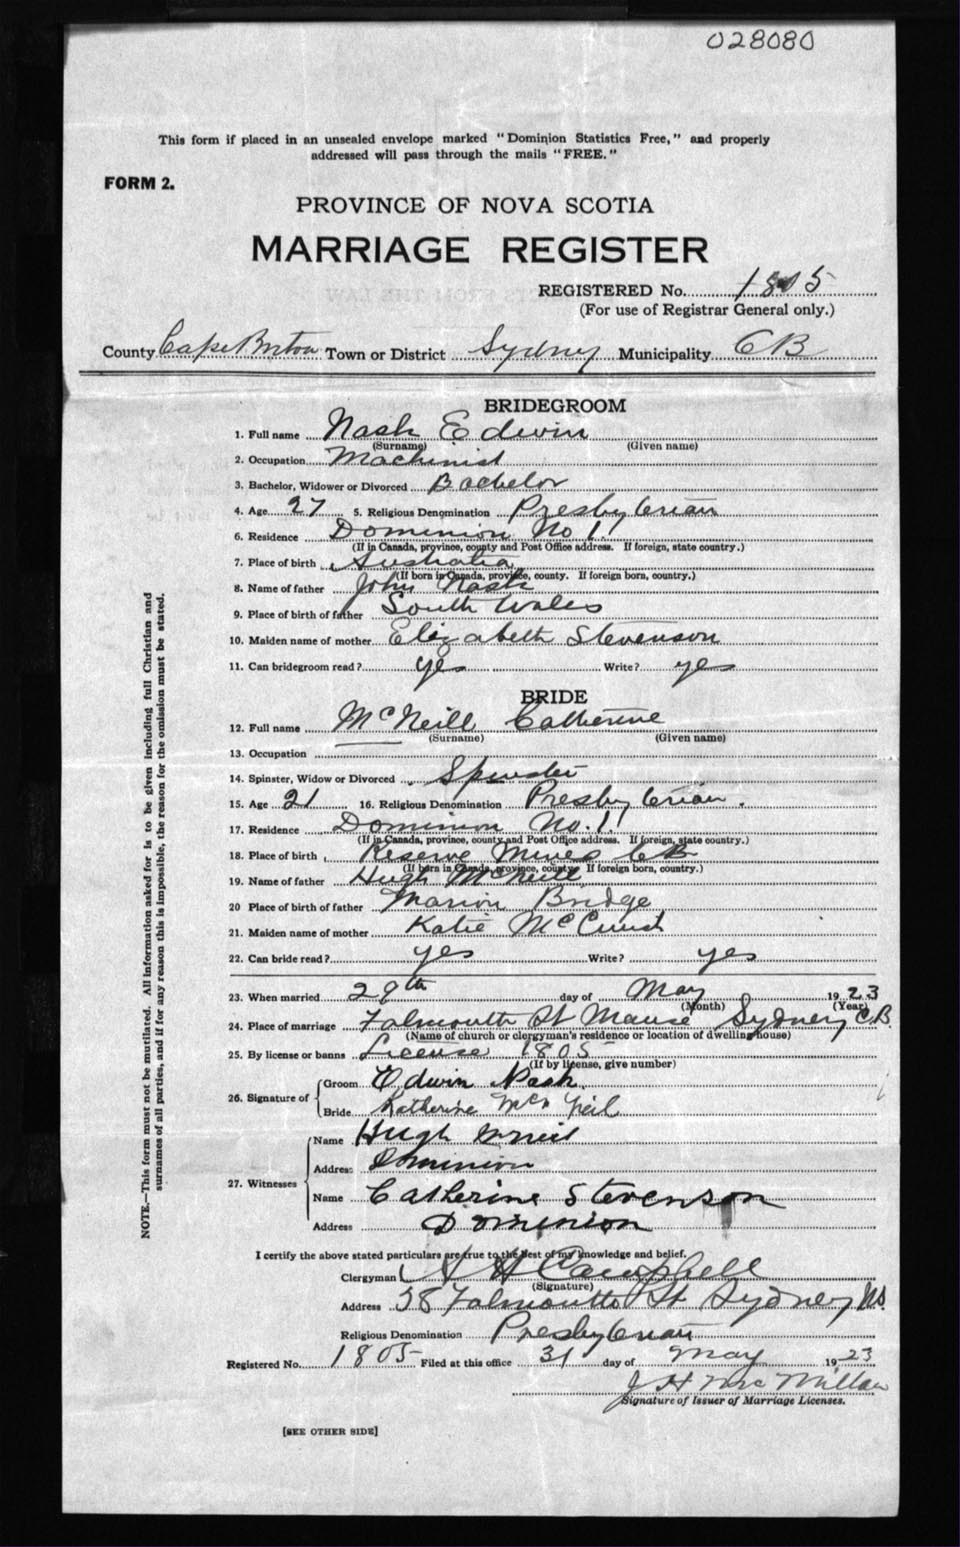 028080
This form if placed in an unsealed envelope marked "Dominion Statistics Free," and properly
addressed will pass through the mails "FREE."
FORM 2.
PROVINCE OF NOVA SCOTIA
MARRIAGE REGISTER
REGISTERED No. 1805
(For use of Registrar General only.)
County Cape Breton Town or District Sydney Municipality CB
BRIDEGROOM
1. Full name Nash Edwin
(Surname) (Given name)
2. Occupation Machinist
3. Bachelor, Widower or Divorced Bachelor
4. Age 27 5. Religious Denomination Presbyterian
6. Residence Dominion No 1
(If in Canada, province, county and Post Office address. If foreign, state country.)
7. Place of birth Australia
(If born in Canada, province, county. If foreign born, country.)
8. Name of father John Nash
9. Place of birth of father South Wales
10. Maiden name of mother Elizabeth Stevenson
11. Can bridegroom read? yes Write? yes
BRIDE
12. Full name McNeill Catherine
(Surname) (Given name)
13. Occupation
14. Spinster, Widow or Divorced Spinster
15. Age 21 16. Religious Denomination Presbyterian.
17. Residence Dominion No. 1
(If in Canada, province, county and Post Office address. If foreign, state country.)
18. Place of birth Reserve Mines CB
(If born in Canada, province, county. If foreign born, country.)
19. Name of father Hugh McNeill
20 Place of birth of father Marion Bridge
21. Maiden name of mother Katie
22. Can bride read? yes Write? yes
23. When married 29th day of May 1923
(Month) (Year)
24. Place of marriage Falmouth St Manse Sydney C.B.
(Name of church or clergyman's residence or location of dwelling house)
25. By license or banns License 1805
(If by license, give number)
26. Signature of
Groom Edwin Nash
Bride Katherine McNeil
27. Witnesses
Name Hugh McNeil
Address Dominion
Name Catherine Stevenson
Address Dominion
I certify the above stated particulars are true to the best of my knowledge and belief.
Clergyman A H Campbell
(Signature)
Address 38 Falmouth St Sydney NS.
Religious Denomination Presbyterian
Registered No. 1805 Filed at this office 31 day of May 1923
J H McMillan
Signature of Issuer of Marriage Licenses.
[SEE OTHER SIDE]
NOTE.—This form must not be mutilated. All information asked for is to be given including full Christian and
surnames of all parties, and if for any reason this is impossible, the reason for the omission must be stated.